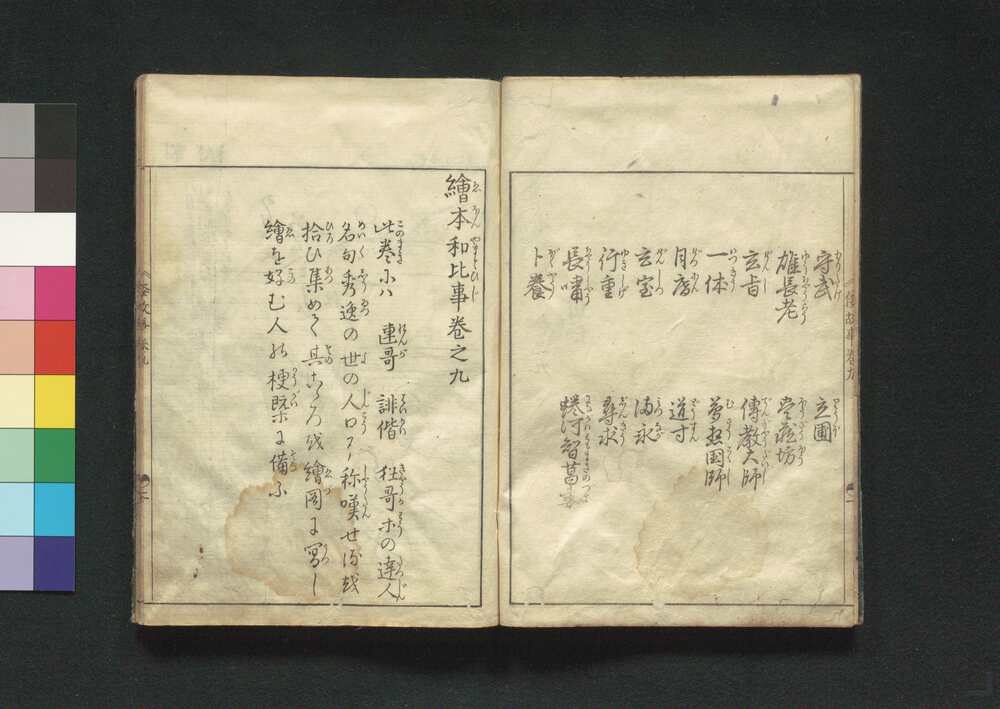 守武
雄長老
玄旨
一休
月庵
玄室
行重
長嘯
卜養
立圃
堂蔵坊
傳教大師
夢想国師
道寸
満永
尋求
蜷川智蘊
繪本和比事巻之九
此巻ハ 連哥 誹諧 狂哥ホの達人
名句秀逸の世の人口ニ称嘆せるを
拾ひ集めて其こゝろを繪圖に冩し
繪を好む人の梗槩に備ふ